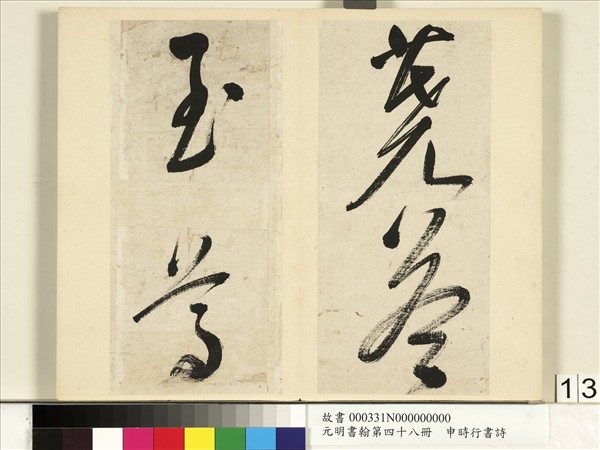 蕘答
至尊
13
故書 000331N000000000
元明書翰第四十八冊 申時行書詩